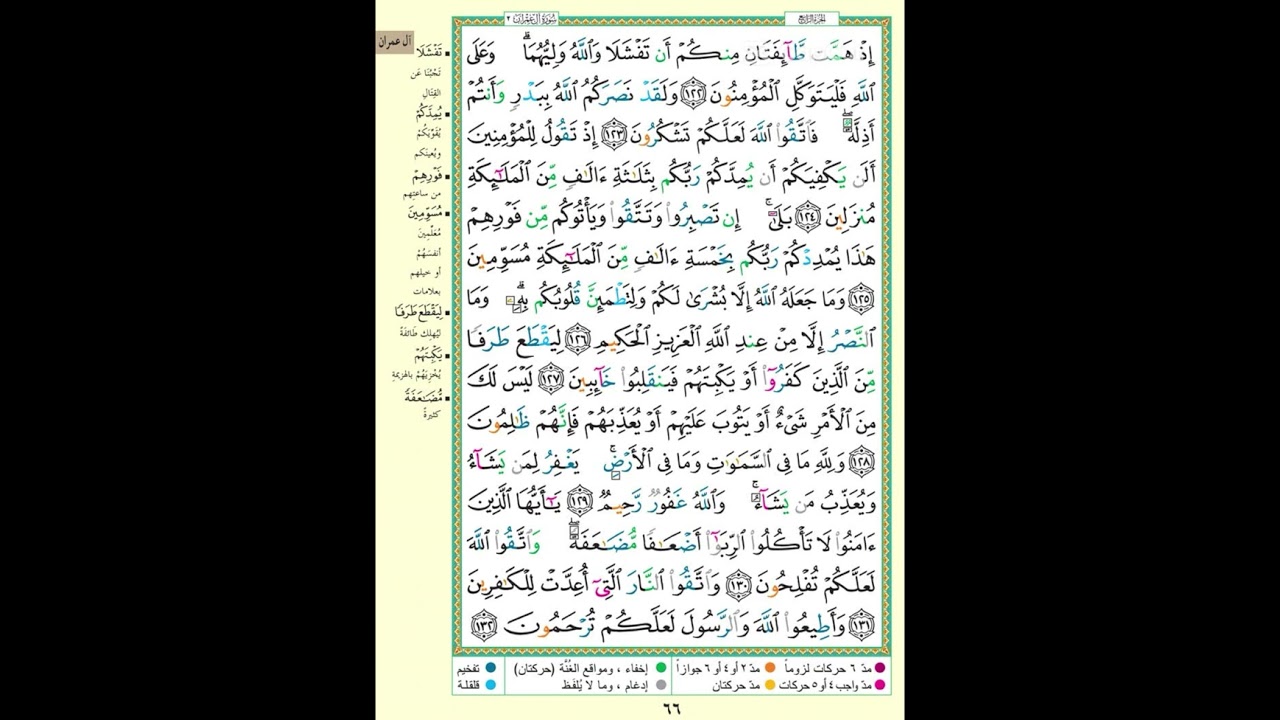 الجزء الرابع
سورة آل عمران ٣
إِذْ هَمَّت طَّآئِفَتَانِ مِنكُمْ أَن تَفْشَلَا وَٱللَّهُ وَلِيُّهُمَا ۗ وَعَلَى
ٱللَّهِ فَلْيَتَوَكَّلِ ٱلْمُؤْمِنُونَ ١٢٢ وَلَقَدْ نَصَرَكُمُ ٱللَّهُ بِبَدْرٍ وَأَنتُمْ
أَذِلَّةٌ ۖ فَٱتَّقُوا۟ ٱللَّهَ لَعَلَّكُمْ تَشْكُرُونَ ١٢٣ إِذْ تَقُولُ لِلْمُؤْمِنِينَ
أَلَن يَكْفِيَكُمْ أَن يُمِدَّكُمْ رَبُّكُم بِثَلَـٰثَةِ ءَالَـٰفٍ مِّنَ ٱلْمَلَـٰٓئِكَةِ
مُنزَلِينَ ١٢٤ بَلَىٰٓ ۚ إِن تَصْبِرُوا۟ وَتَتَّقُوا۟ وَيَأْتُوكُم مِّن فَوْرِهِمْ
هَـٰذَا يُمْدِدْكُمْ رَبُّكُم بِخَمْسَةِ ءَالَـٰفٍ مِّنَ ٱلْمَلَـٰٓئِكَةِ مُسَوِّمِينَ
١٢٥ وَمَا جَعَلَهُ ٱللَّهُ إِلَّا بُشْرَىٰ لَكُمْ وَلِتَطْمَئِنَّ قُلُوبُكُم بِهِۦ ۗ وَمَا
ٱلنَّصْرُ إِلَّا مِنْ عِندِ ٱللَّهِ ٱلْعَزِيزِ ٱلْحَكِيمِ ١٢٦ لِيَقْطَعَ طَرَفًا
مِّنَ ٱلَّذِينَ كَفَرُوٓا۟ أَوْ يَكْبِتَهُمْ فَيَنقَلِبُوا۟ خَآئِبِينَ ١٢٧ لَيْسَ لَكَ
مِنَ ٱلْأَمْرِ شَىْءٌ أَوْ يَتُوبَ عَلَيْهِمْ أَوْ يُعَذِّبَهُمْ فَإِنَّهُمْ ظَـٰلِمُونَ
١٢٨ وَلِلَّهِ مَا فِى ٱلسَّمَـٰوَٰتِ وَمَا فِى ٱلْأَرْضِ ۚ يَغْفِرُ لِمَن يَشَآءُ
وَيُعَذِّبُ مَن يَشَآءُ ۚ وَٱللَّهُ غَفُورٌ رَّحِيمٌ ١٢٩ يَـٰٓأَيُّهَا ٱلَّذِينَ
ءَامَنُوا۟ لَا تَأْكُلُوا۟ ٱلرِّبَوٰٓا۟ أَضْعَـٰفًا مُّضَـٰعَفَةً ۖ وَٱتَّقُوا۟ ٱللَّهَ
لَعَلَّكُمْ تُفْلِحُونَ ١٣٠ وَٱتَّقُوا۟ ٱلنَّارَ ٱلَّتِىٓ أُعِدَّتْ لِلْكَـٰفِرِينَ
١٣١ وَأَطِيعُوا۟ ٱللَّهَ وَٱلرَّسُولَ لَعَلَّكُمْ تُرْحَمُونَ ١٣٢
آل عمران
تَفْشَلَا
تَجْبُنَا عَن
القِتَالِ
يُمِدَّكُمْ
يُقَوِّيَكُمْ
ويُعِينَكم
فَوْرِهِمْ
من ساعتِهم
مُسَوِّمِينَ
مُعَلِّمِينَ
أنفسَهُمْ
أو خيلهم
بعلامات
لِيَقْطَعَ طَرَفًا
ليُهلِكَ طَائفةً
يَكْبِتَهُمْ
يُخْزِيَهُمْ بالهزيمةِ
مُّضَـٰعَفَةً
كثيرةً
مدّ ٦ حركات لزوماً
مدّ ٢ أو ٤ أو ٦ جوازاً
إخفاء ، ومواقع الغُنَّة (حركتان)
تفخيم
مدّ واجب ٤ أو ٥ حركات
مدّ حركتان
إدغام ، وما لا يُلفَظ
قلقلة
٦٦